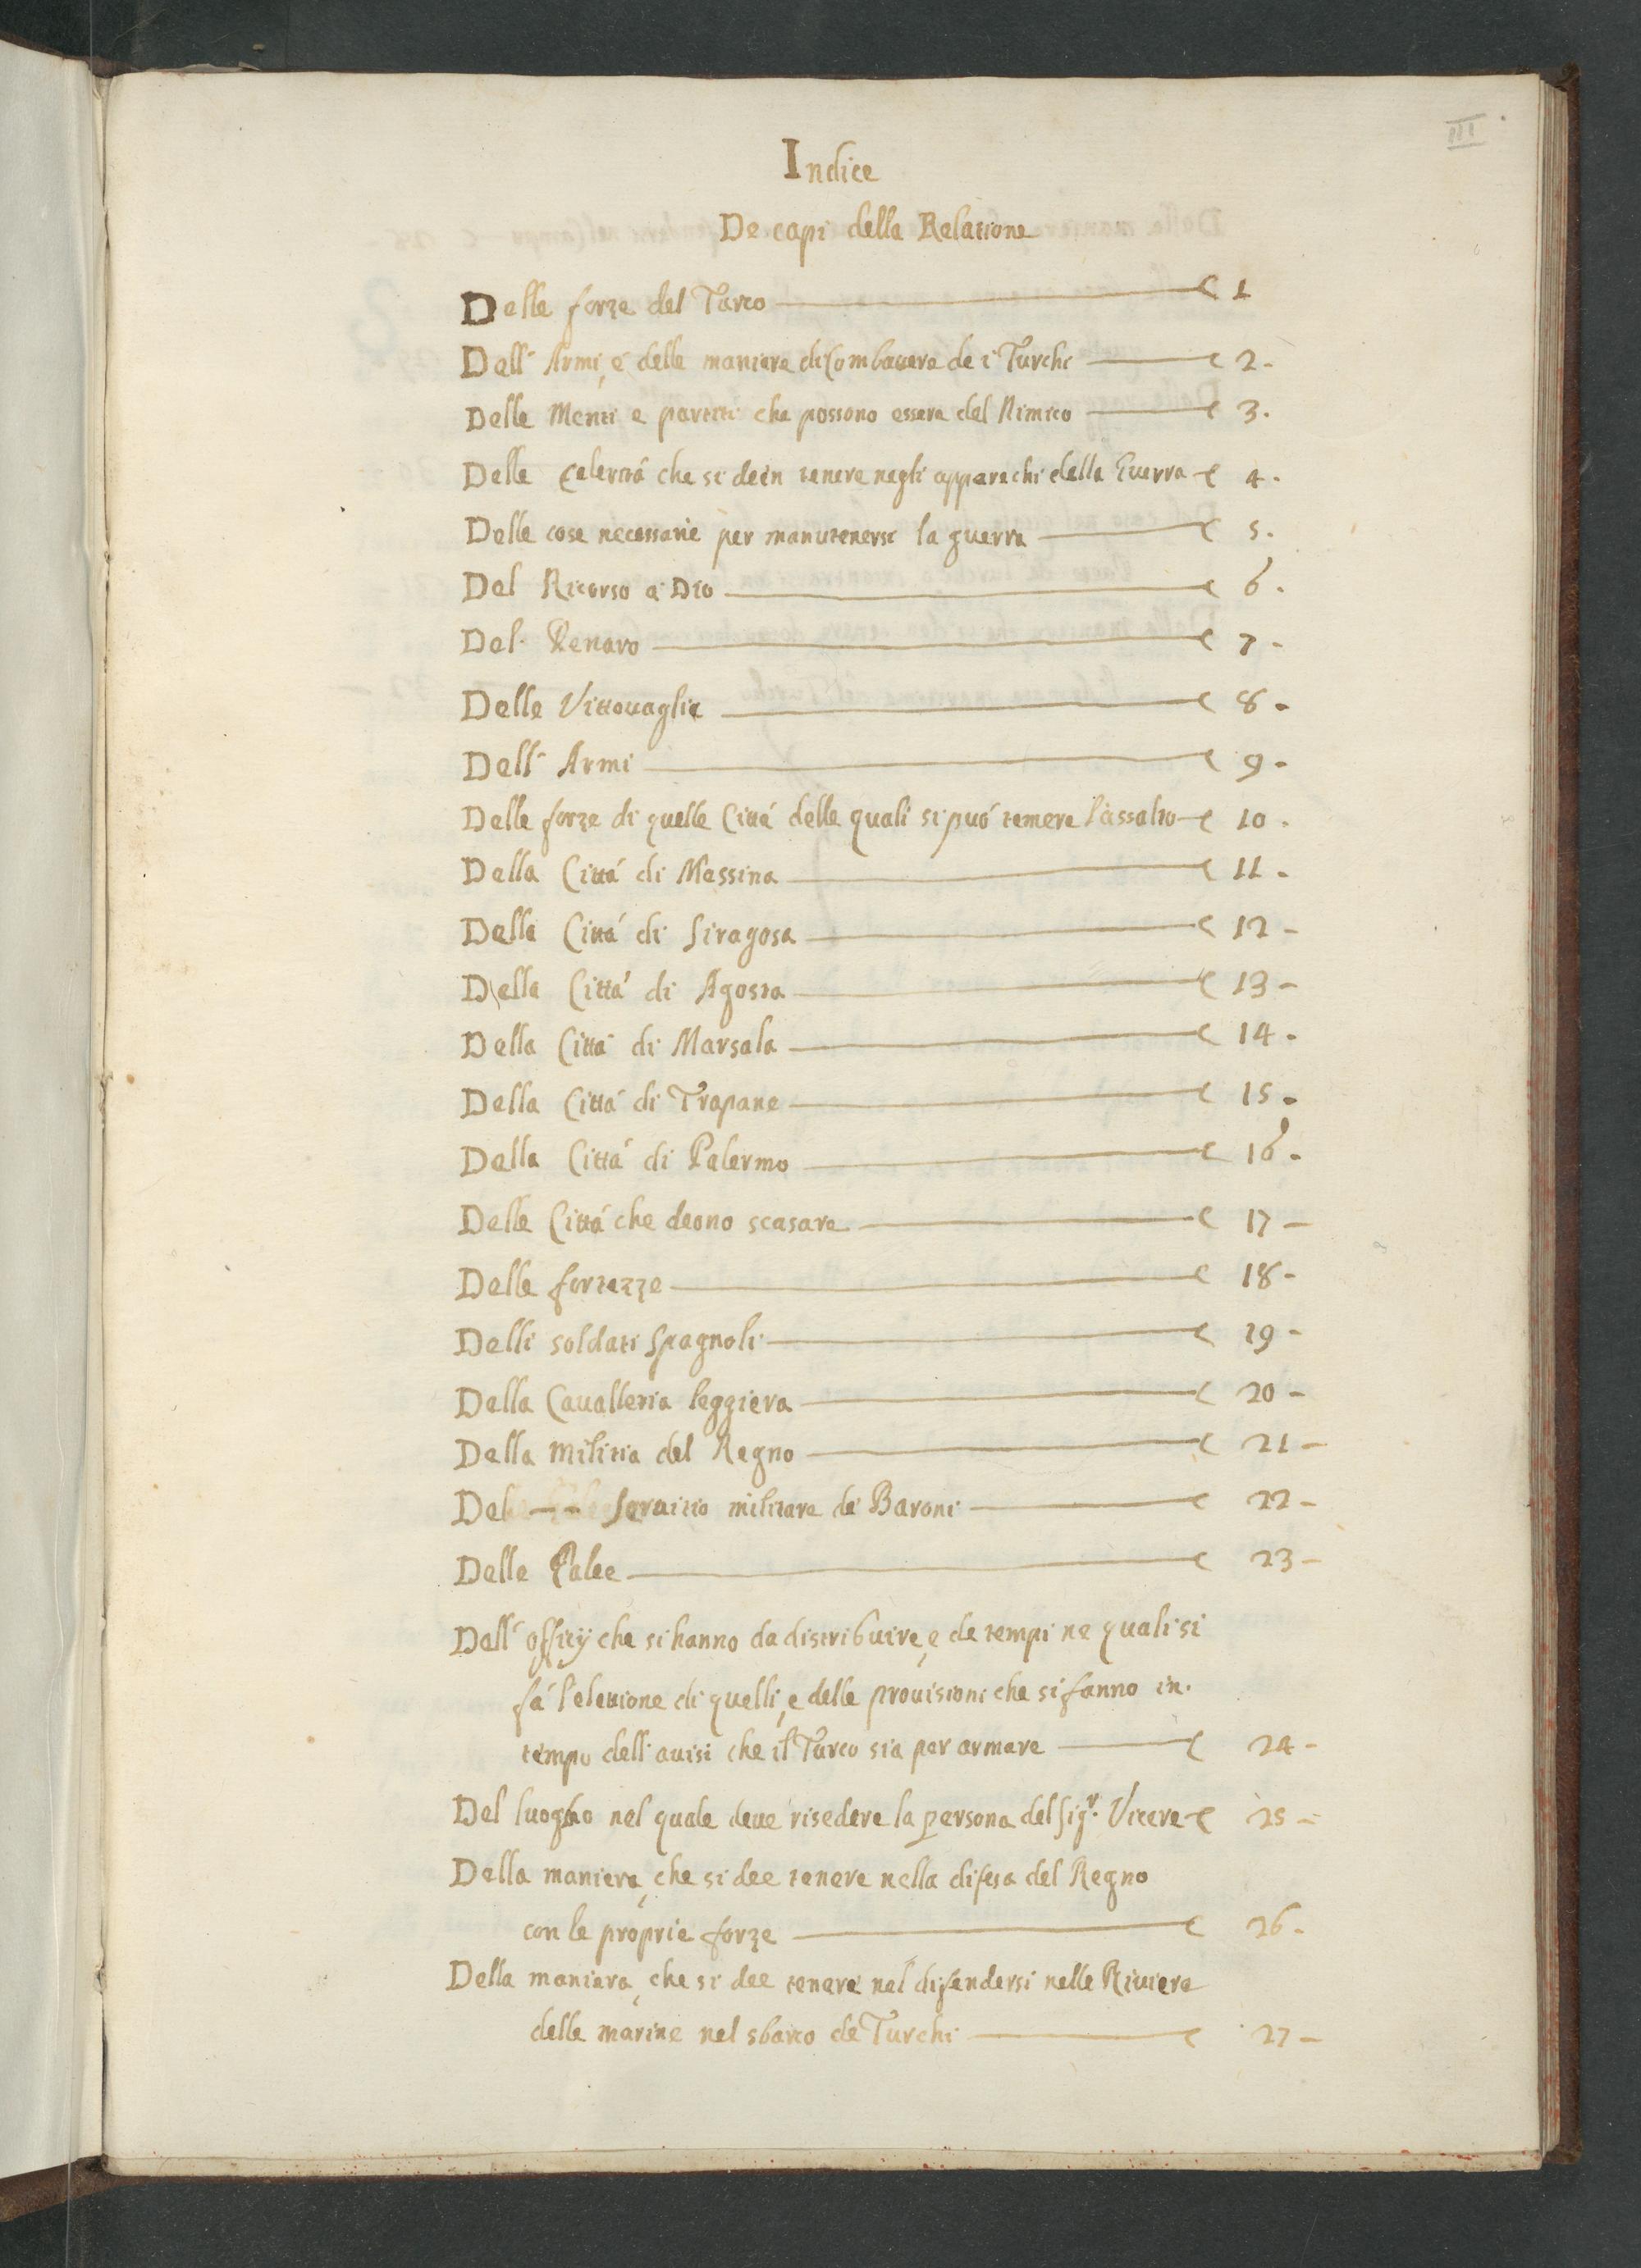 III
Indice
De capi della Relatione
Delle forze del Turco c 1
Dell' Armi, e delle maniere di Combattere de i Turchi c 2.
Delle Menti e partiti che possono essere del Nimico c 3.
Della Celerità che si deèn tenere negli apparechi della Guerra c 4.
Delle cose necessarie per manutenersi la guerra c 5.
Del Ricorso a Dio c 6.
Del Denaro c 7-
Delle Vittouaglie c 8.
Dell' Armi c 9.
Delle forze di quelle Città delle quali si può temere l'assalto c 10.
Della Città di Messina c 11.
Della Città di Siragosa c 12-
Della Città di Agosta c 13-
Della Città di Marsala c 14.
Della Città di Trapane c 15.
Della Città di Palermo c 16.
Delle Città che deono scasare c 17-
Delle fortezze c 18-
Delli soldati Spagnoli c 19-
Della Caualleria leggiera c 20-
Della Militia del Regno c 21-
Del -- Seruitio militare de Baroni c 22-
Delle Galee c 23-
Dell' officij che si hanno da distribuire, e de tempi ne quali si
fà l'elettione di quelli, e delle prouisioni che si fanno in.
tempo delli auisi che il Turco sia per armare c 24-
Del luogho nel quale deue risedere la persona del Sig.r Vicere c 25-
Della maniera, che si dee tenere nella difesa del Regno
con le proprie forze c 26.
Della maniera, che si dee tenere nel difendersi nelle Riuiere
delle marine nel sbarco de Turchi c 27-